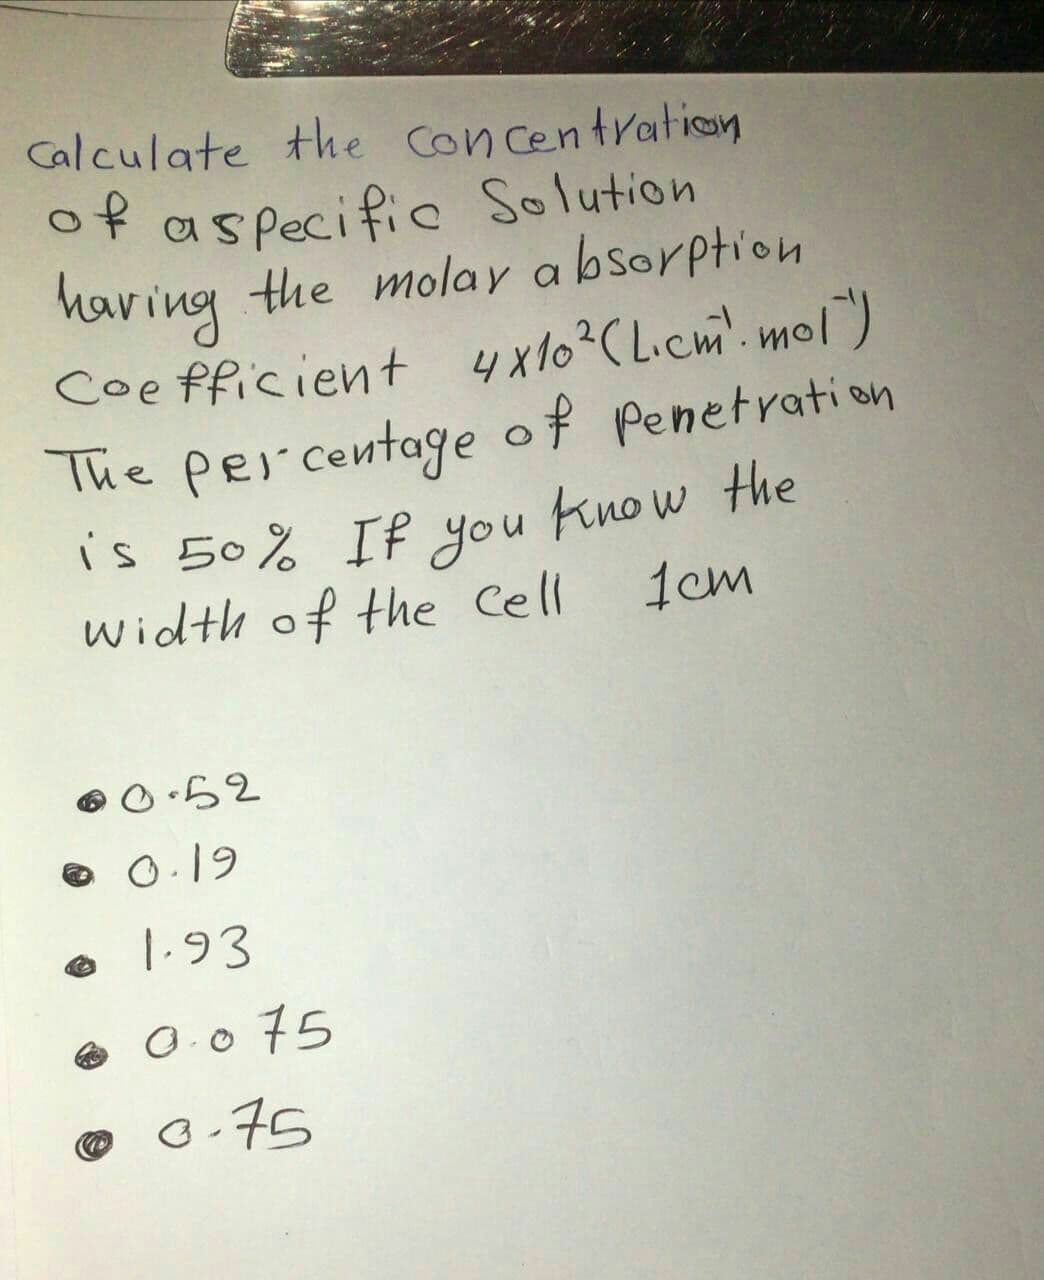 Calculate the concentration
of a specific Solution
having the molar absorption
Coefficient 4x10² (L.cm⁻¹.mol⁻¹)
The percentage of Penetration
is 50% If you know the
width of the Cell 1cm
• 0.52
• 0.19
• 1.93
• 0.075
• 0.75